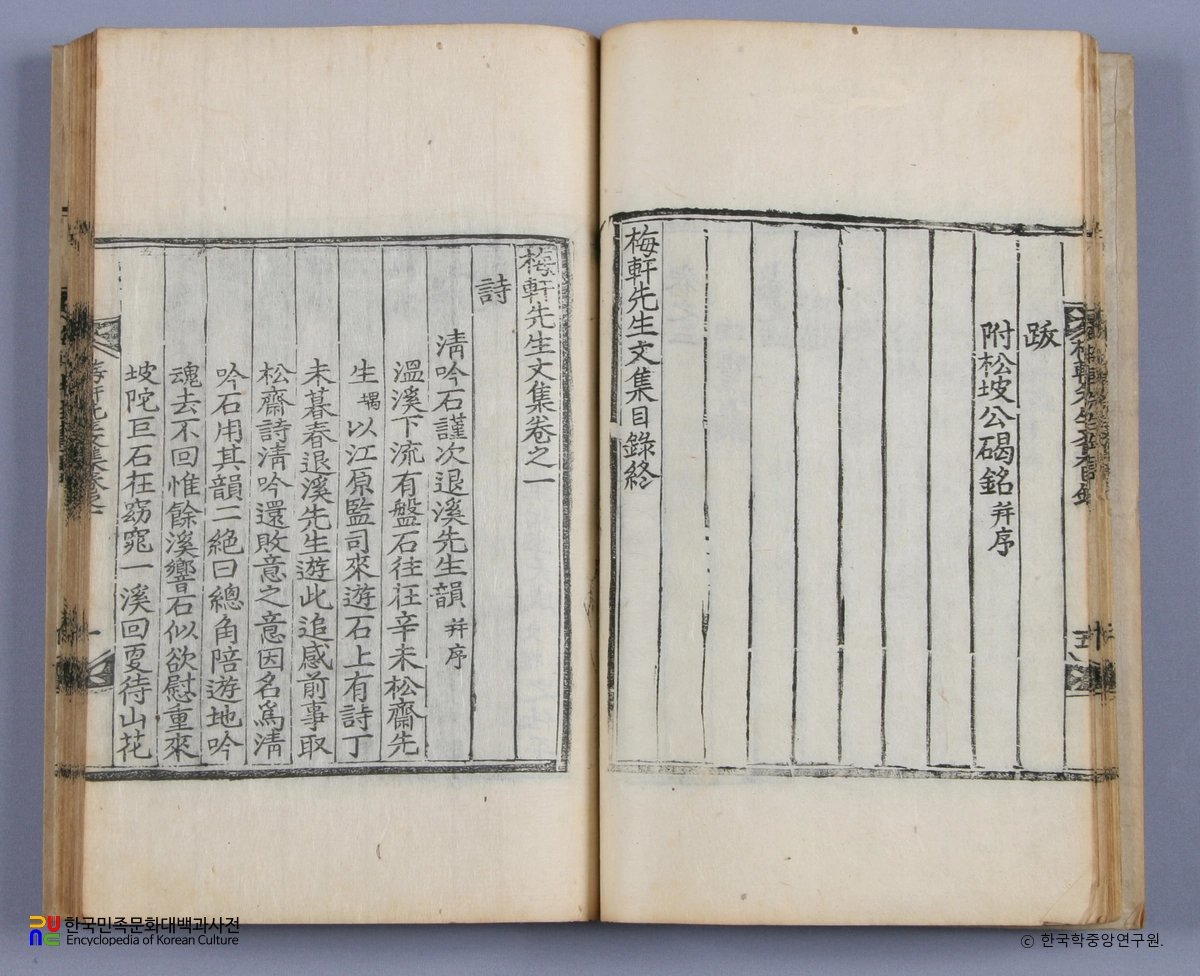 跋
附松坡公碣銘 并序
梅軒先生文集目錄終
梅軒先生文集卷之一
詩
清吟石謹次退溪先生韻 并序
溫溪下流有盤石往在辛未松齋先
生 堣 以江原監司來遊石上有詩丁
未暮春退溪先生遊此追感前事取
松齋詩清吟還敗意之意因名爲清
吟石用其韻二絶曰總角陪遊地吟
魂去不回惟餘溪響石似欲慰重來
坡陀巨石在窈窕一溪回更待山花
한국민족문화대백과사전
Encyclopedia of Korean Culture
© 한국학중앙연구원.